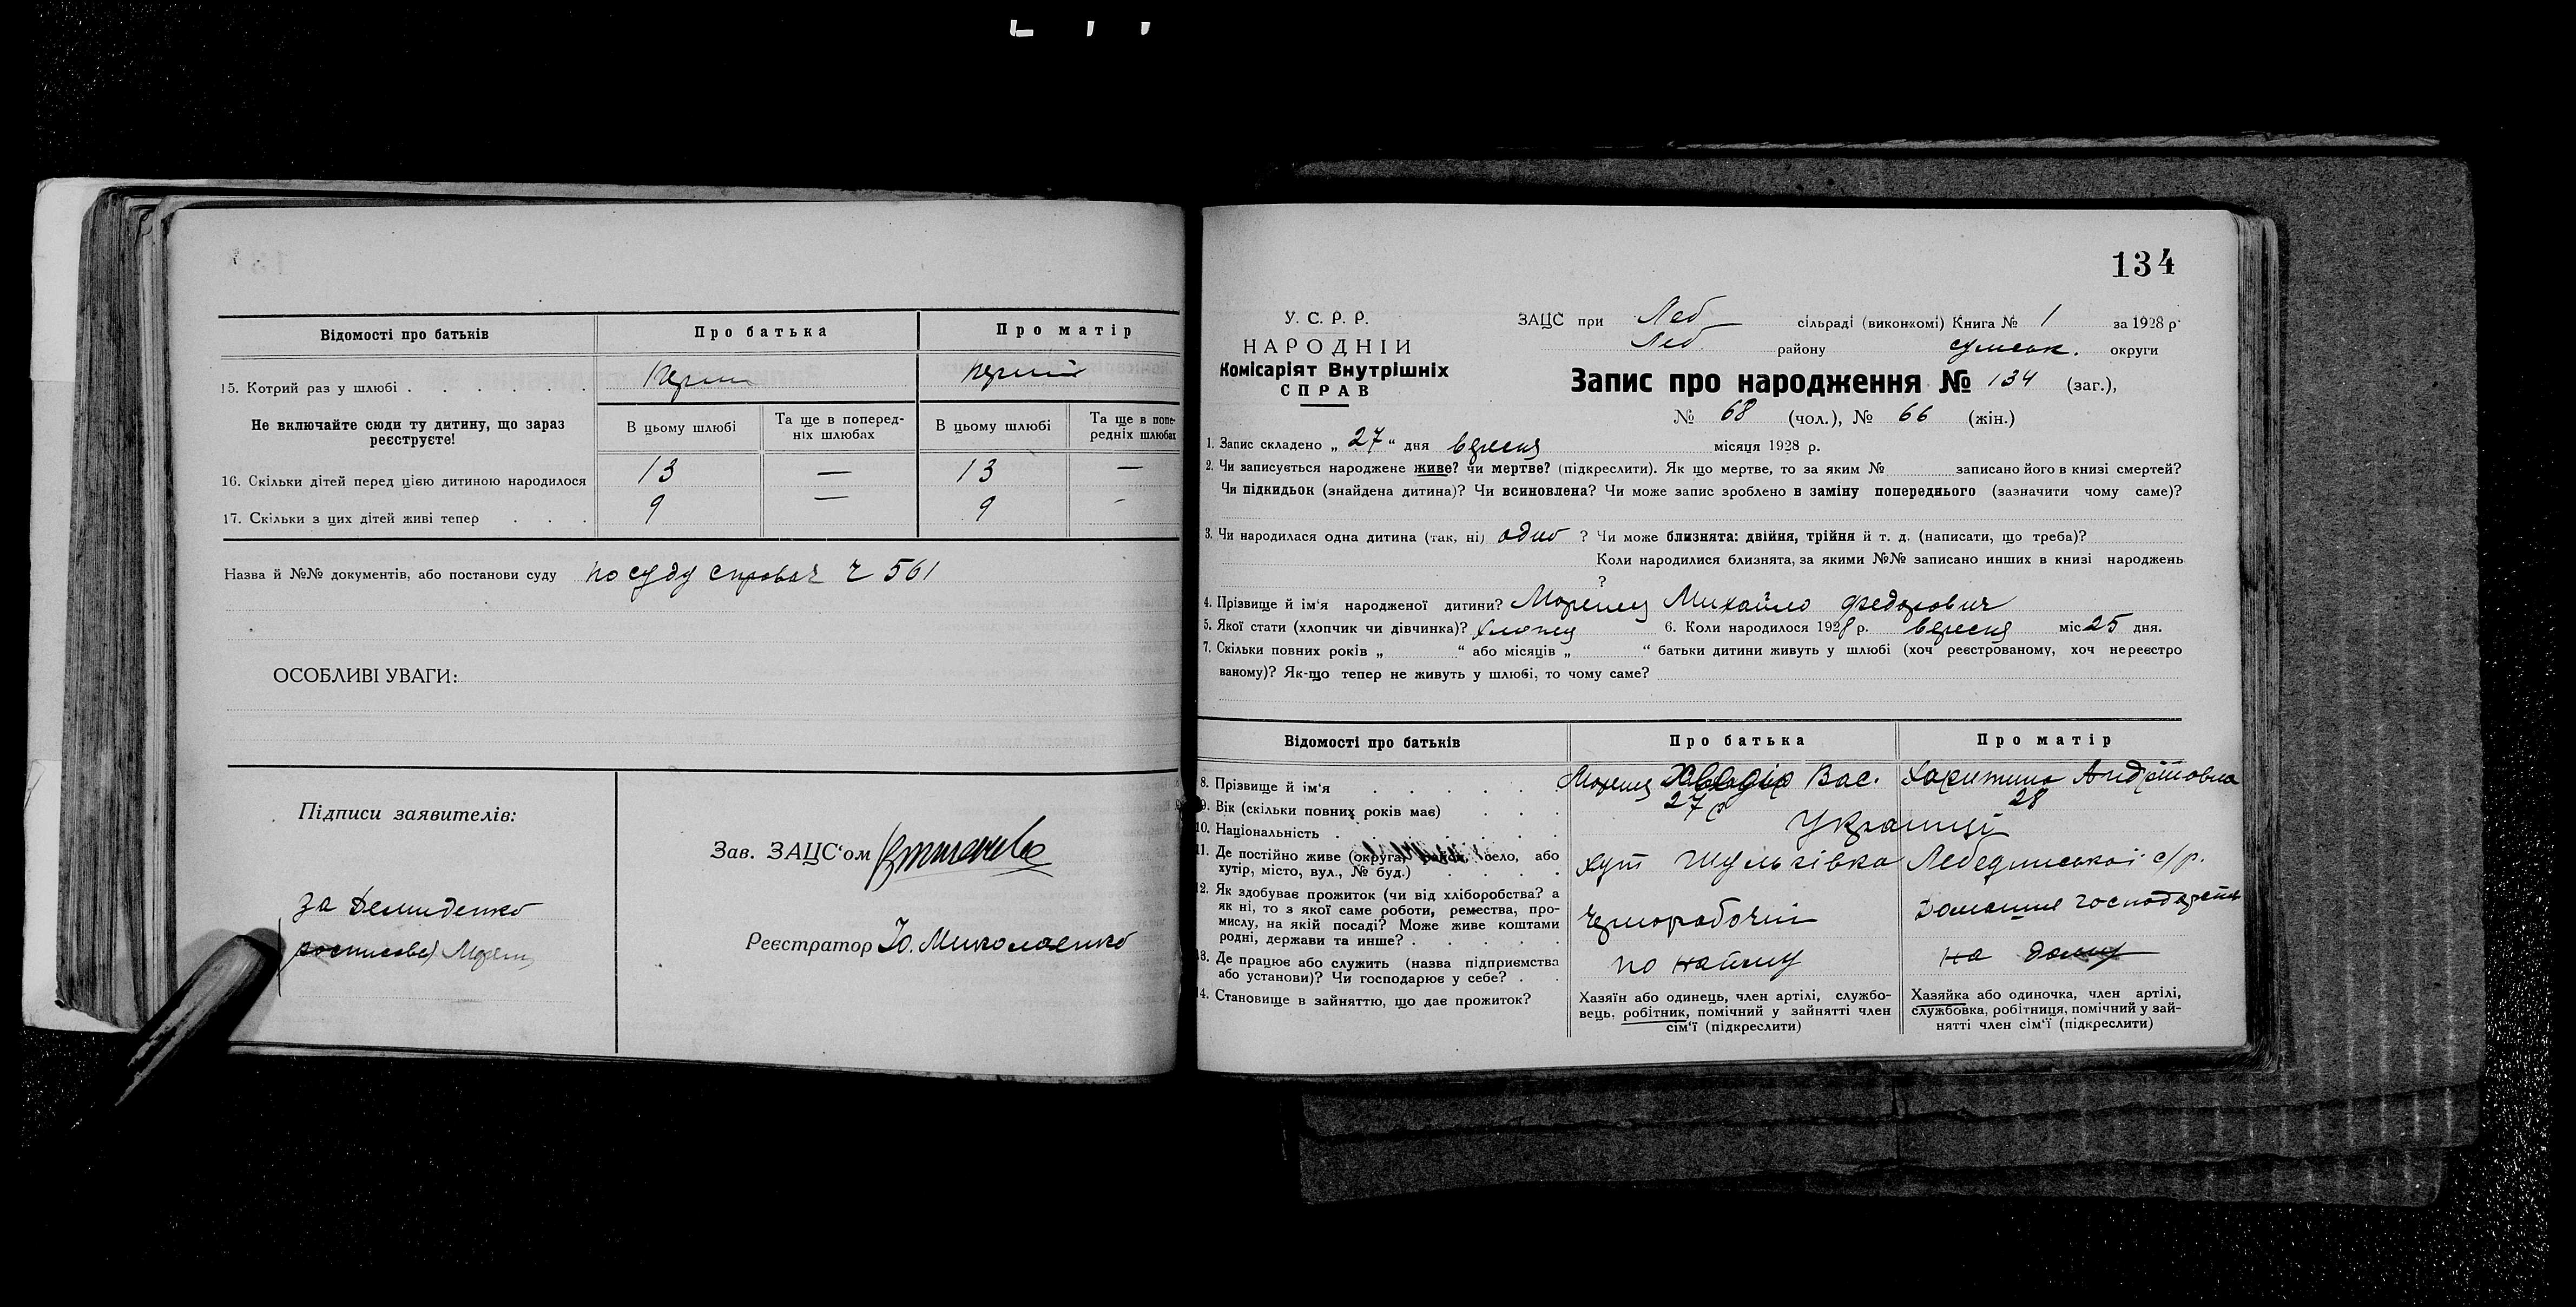 Відомості про батьків
Про батька
Про матір
15. Котрий раз у шлюбі
перший
Не включайте сюди ту дитину, що зараз
реєструєте!
В цьому шлюбі
Та ще в поперед-
ніх шлюбах
В цьому шлюбі
Та ще в попе-
редніх шлюбах
16. Скільки дітей перед цією дитиною народилося
13 — 13 —
17. Скільки з цих дітей живі тепер . . .
9 — 9 -
Назва й №№ документів, або постанови суду по суду справач ч 561
ОСОБЛИВІ УВАГИ:
Підписи заявителів:
за Демиденко
росписався
Зав. ЗАЦС‘ом
Реєстратор Ю. Миколаенко
134
У. С. Р. Р.
НАРОДНІЙ
Комісаріят Внутрішніх
СПРАВ
ЗАЦС при Леб сільраді (виконкомі) Книга № 1 за 1928 р
Леб. району сумськ. округи
Запис про народження № 134 (заг.),
№ 68 (чол.), № 66 (жін.)
1. Запис складено „ 27 “ дня вересня місяця 1928 р.
2. Чи записується народжене живе? чи мертве? (підкреслити). Як що мертве, то за яким № записано його в книзі смертей?
Чи підкидьок (знайдена дитина)? Чи всиновлена? Чи може запис зроблено в заміну попереднього (зазначити чому саме)?
3. Чи народилася одна дитина (так, ні) одно ? Чи може близнята: двійня, трійня й т. д. (написати, що треба)?
Коли народилися близнята, за якими №№ записано инших в книзі народжень
?
4. Прізвище й ім‘я народженої дитини? Моренец Михайло Федорович
5. Якої стати (хлопчик чи дівчинка)? хлопец 6. Коли народилося 1928 р. вересня міс 25 дня.
7. Скільки повних років „ “ або місяців „ “ батьки дитини живуть у шлюбі (хоч реєстрованому, хоч нереєстро
ваному)? Як-що тепер не живуть у шлюбі, то чому саме?
Відомості про батьків
Про батька
Про матір
8. Прізвище й ім‘я
Моренец Вас. Харитина Андріївна
9. Вік (скільки повних років має)
27 28
10. Національність
Українці
11. Де постійно живе (округа, район, село, або
хутір, місто, вул., № буд.)
хут Шульгівка Лебединської с/р.
12. Як здобуває прожиток (чи від хліборобства? а
як ні, то з якої саме роботи, ремества, про-
мислу, на якій посаді? Може живе коштами
родні, держави та инше?
Чернорабочий
Домашнє господарств
13. Де працює або служить (назва підприємства
або установи)? Чи господарює у себе?
по найму
на дому
14. Становище в зайняттю, що дає прожиток?
Хазяїн або одинець, член артілі, службо-
вець, робітник, помічний у зайнятті член
сім‘ї (підкреслити)
Хазяйка або одиночка, член артілі,
службовка, робітниця, помічний у зай-
нятті член сім‘ї (підкреслити)